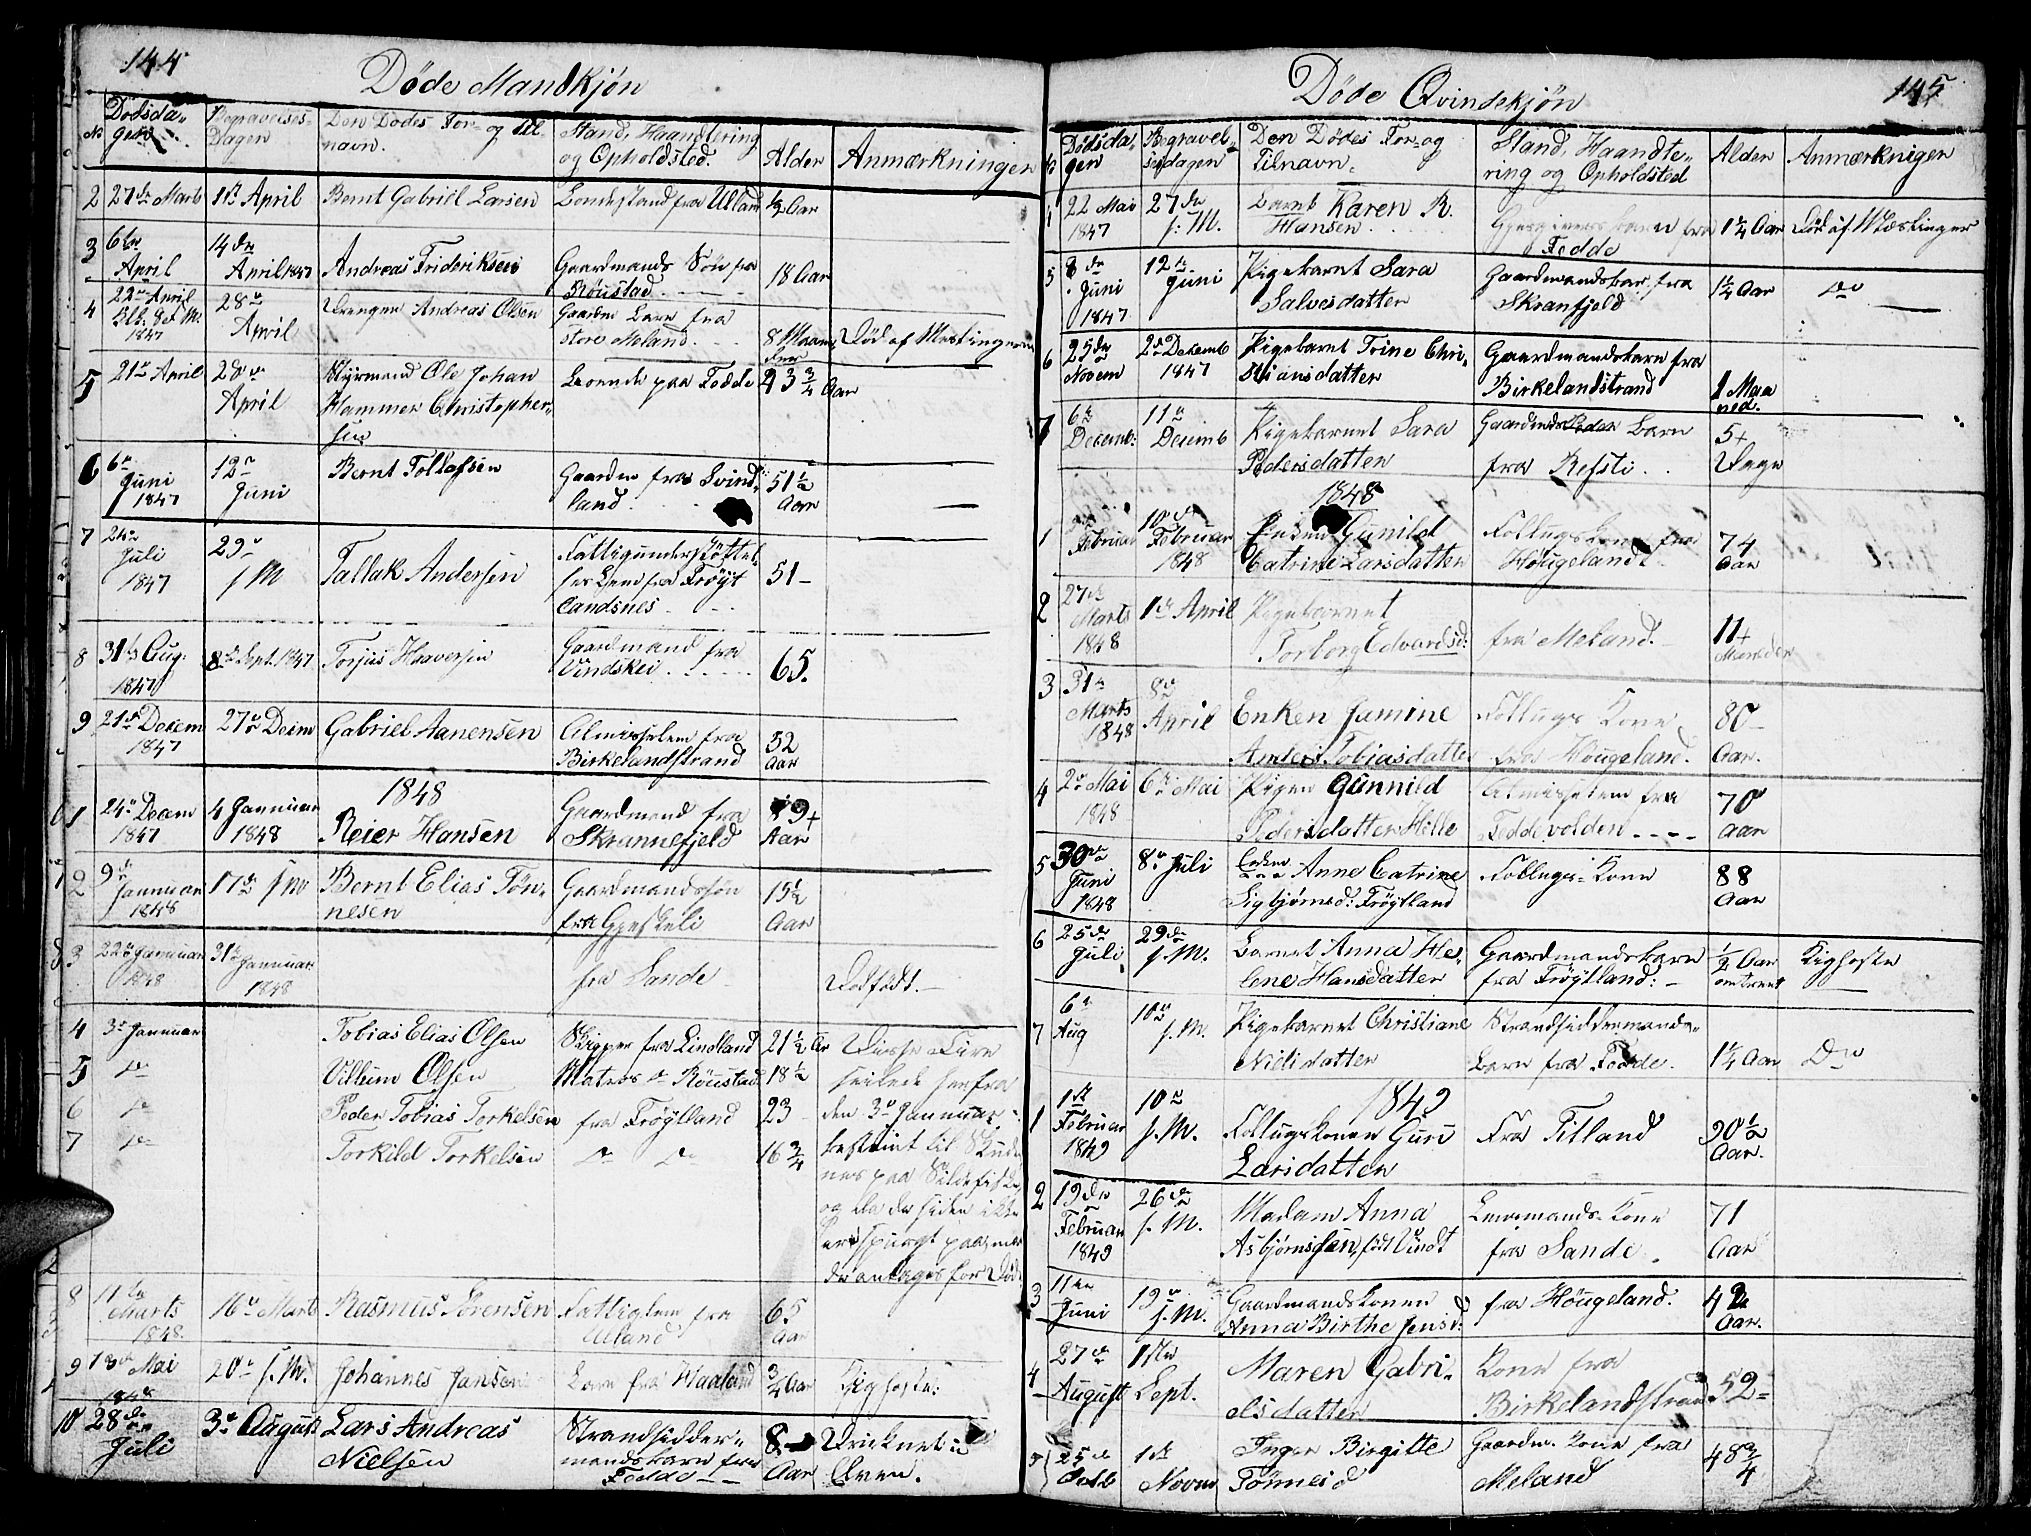 144
Døde Mandkjøn
No
Dødsda-
gen
Begravelses-
Dagen
Den Dødes For- og Til-
navn.
Stand, Haandtering
og Opholdsted.
Alder
Anmærkninger
2 27de Marts 1ste April Bernt Gabriel Larsen Bondestand fra Ulland ½ Aar
3 6te April 14de April 1847 Andreas Frideriksen Gaardmands Søn fra
Röustad. 18 Aar
4 22de April 1847 28de April Drengen Andreas Olsen Gaardm. Barn fra
store Meland. 8 Maane-
der Død af Meslingerne
5 21de April 28de April Styrmand Ole Johan
Hammer Christopher-
sen Boende paa Fedde 23 ¾ Aar
6 6te Juni 1847 12te Juni Bernt Tollafsen Gaardm fra Svind-
land. 51½ Aar
7 24de Juli 1847 29de s M Tallak Andersen Fattigunderstøttel-
ses Lem fra Frøyt
landsnes 51-
8 31te Aug. 1847 8de Sept. 1847 Torjus Haaversen Gaardmand fra
Vindskei 65.
9 21de Decem 1847 27de Decem Gabriel Aanensen Almisselem fra
Birkelandstrand 52 Aar
1848
1 24de Decem 1847 4 Januar 1848 Reier Hansen Gaardmand fra
Skrannefjeld 79 Aar
2 9de Januar 1848 17de s M Bernt Elias Tøn-
nesen Gaardmandssøn
fra Gjeskeli 15½ Aar
3 22de Januar 1848 31te Januar 1848 fra Sande Dødfødt.
4 3de Januar Tobias Elias Olsen Skipper fra Lindland 21½ Aar
5 do Villum Olsen Matros do Röustad 18½
6 do Peder Tobias Torkelsen fra Frøytland 23
7 do Torkild Torkelsen do do 16¾
Disse Fire
seilede herfra
den 3de Januar
bestemt til Skude
nes paa Sildefiske
og da de siden ikke
er spurgt paa, me
de antages for Død
8 11te Marts 1848. 16de Marts Rasmus Sörensen Fattiglem fra
Uland 65 Aar
9 13de Mai 1848 20de s. M. Johannes Jansen Barn fra Haaland ¾ Aar Kighoste:
10 28de Juli 3de August Lars Andreas
Nielsen Strandsidder-
mandsbarn fra
Fedde 8 Aar Druknet i
Elven.
145
Døde Qvindekjön
Dødsda-
gen
Begravel-
sesdagen
Den Dødes For- og
Tilnavn.
Stand, Haandte-
ring og Opholdsted
Alder
Anmærkniger
4 22 Mai 1847 27de s. M. Barnet Karen R.
Hansen Gjesgiversbarn fra
Fedde 1¼ Aar Død af Mæslinger
5 8de Juni 1847 12te Juni Pigebarnet Sara
Salvesdatter Gaardmandsbarn fra
Skranfjeld 1¼ Aar do
6 25de Novem 2de Decemb 1847 Pigebarnet Trine Chri-
stiansdatter Gaardmandsbarn fra
Birkelandstrand 1 Maa
ned.
7 6te Decemb: 11te Decemb Pigebarnet Sara
Pedersdatter Gaardmands Barn
fra Refsti 5 Dage
1848
1 Februar 10de Februar 1848 Enken Gunild
Catrine Larsdatter Follugskone fra
Høugelandt 74 Aar
2 27de Marts 1848 1ste April Pigebarnet
Torborg Edvardsd: fra Meland. 11 Maaneder
3 31te Marts 1848 8de April Enken Jamine
Anders Tobiasdatter Follugs Kone
fra Høugeland. 80 Aar.
4 2de Mai 1848 6te Mai Pigen Gunnild
Pedersdatter Hille Almisselem fra
Feddevolden 70 Aar
5 30te Juni 1848 8de Juli Enken Anne Catrine
Sigbjörnsd: Frøytland Follugs-Kone 88 Aar
6 25de Juli 29de s. M. Barnet Anna He-
lene Hansdatter Gaardmandsbarn
fra Frøytland: ½ Aar
omtrent Kighoste
7 6te Aug 10de s. M. Pigebarnet Christiane
Nielsdatter Strandsiddermands-
Barn fra Fedde. 1¼ Aar Do
1849
1 1ste Februar 1849 10de s. M. Follugskonen Guru
Larsdatter Fra Titland 90½ Aar.
2 19de Februar 1849 26de s. M. Madam Anna
Asbjørnssen, født Vindt Lensmands-Kone
fra Sande 71 Aar
3 11te Juni 19de s. M. Gaardmandskonen
Anna Birthe Jensd: fra Høugeland. 42 Aar.
4 27de August 1ste Sept. Maren Gabri-
elsdatter Kone fra
Birkelandstrand 52
5 25de Octb 1ste Novem Inger Birgitte
Tønnesd Gaardm. Kone fra
Meland 48¾